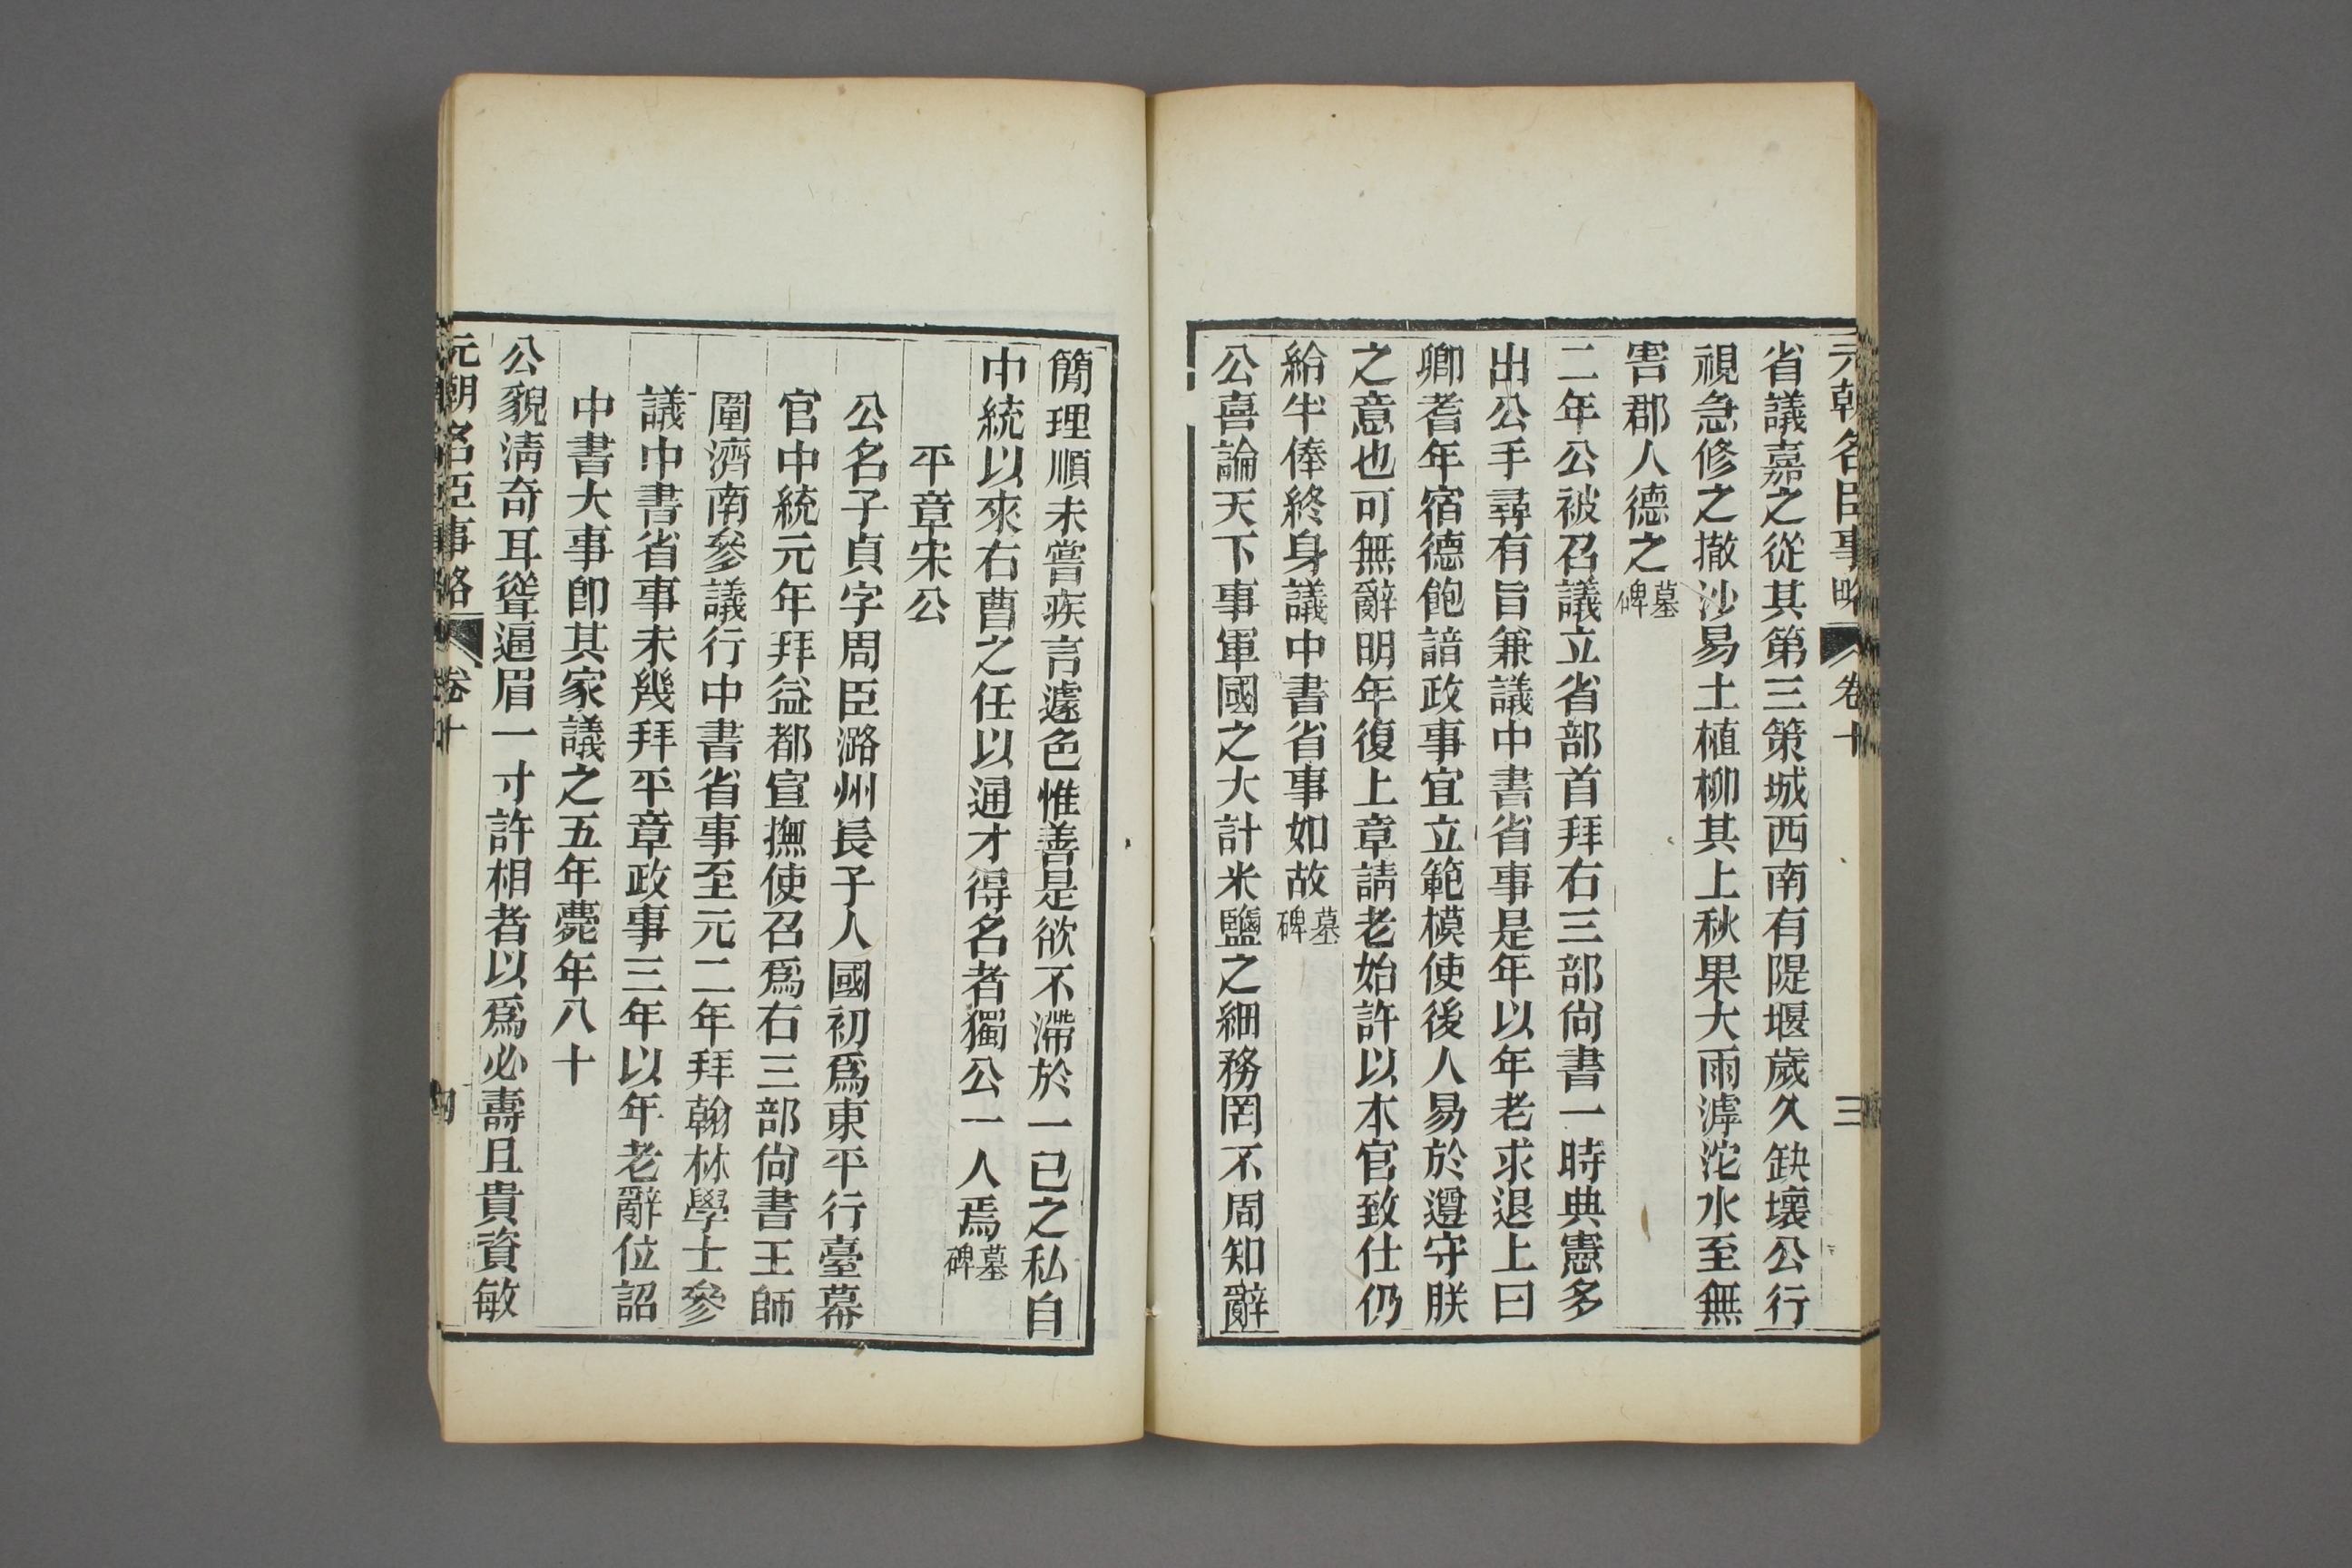 元朝名臣事略 卷十 三
省議嘉之從其第三策城西南有隄堰歲久缺壞公行
視急修之撤沙易土植柳其上秋果大雨滹沱水至無
害郡人德之墓碑
二年公被召議立省部首拜右三部尚書一時典憲多
出公手尋有旨兼議中書省事是年以年老求退上曰
卿耆年宿德飽諳政事宜立範模使後人易於遵守朕
之意也可無辭明年復上章請老始許以本官致仕仍
給半俸終身議中書省事如故墓碑
公喜論天下事軍國之大計米鹽之細務罔不周知辭
簡理順未嘗疾言遽色惟善是欲不滯於一己之私自
中統以來右曹之任以通才得名者獨公一人焉墓碑
平章宋公
公名子貞字周臣潞州長子人國初爲東平行臺幕
官中統元年拜益都宣撫使召爲右三部尚書王師
圍濟南參議行中書省事至元二年拜翰林學士參
議中書省事未幾拜平章政事三年以年老辭位詔
中書大事卽其家議之五年薨年八十
公貌淸奇耳聳逼眉一寸許相者以爲必壽且貴資敏
元朝名臣事略 卷十